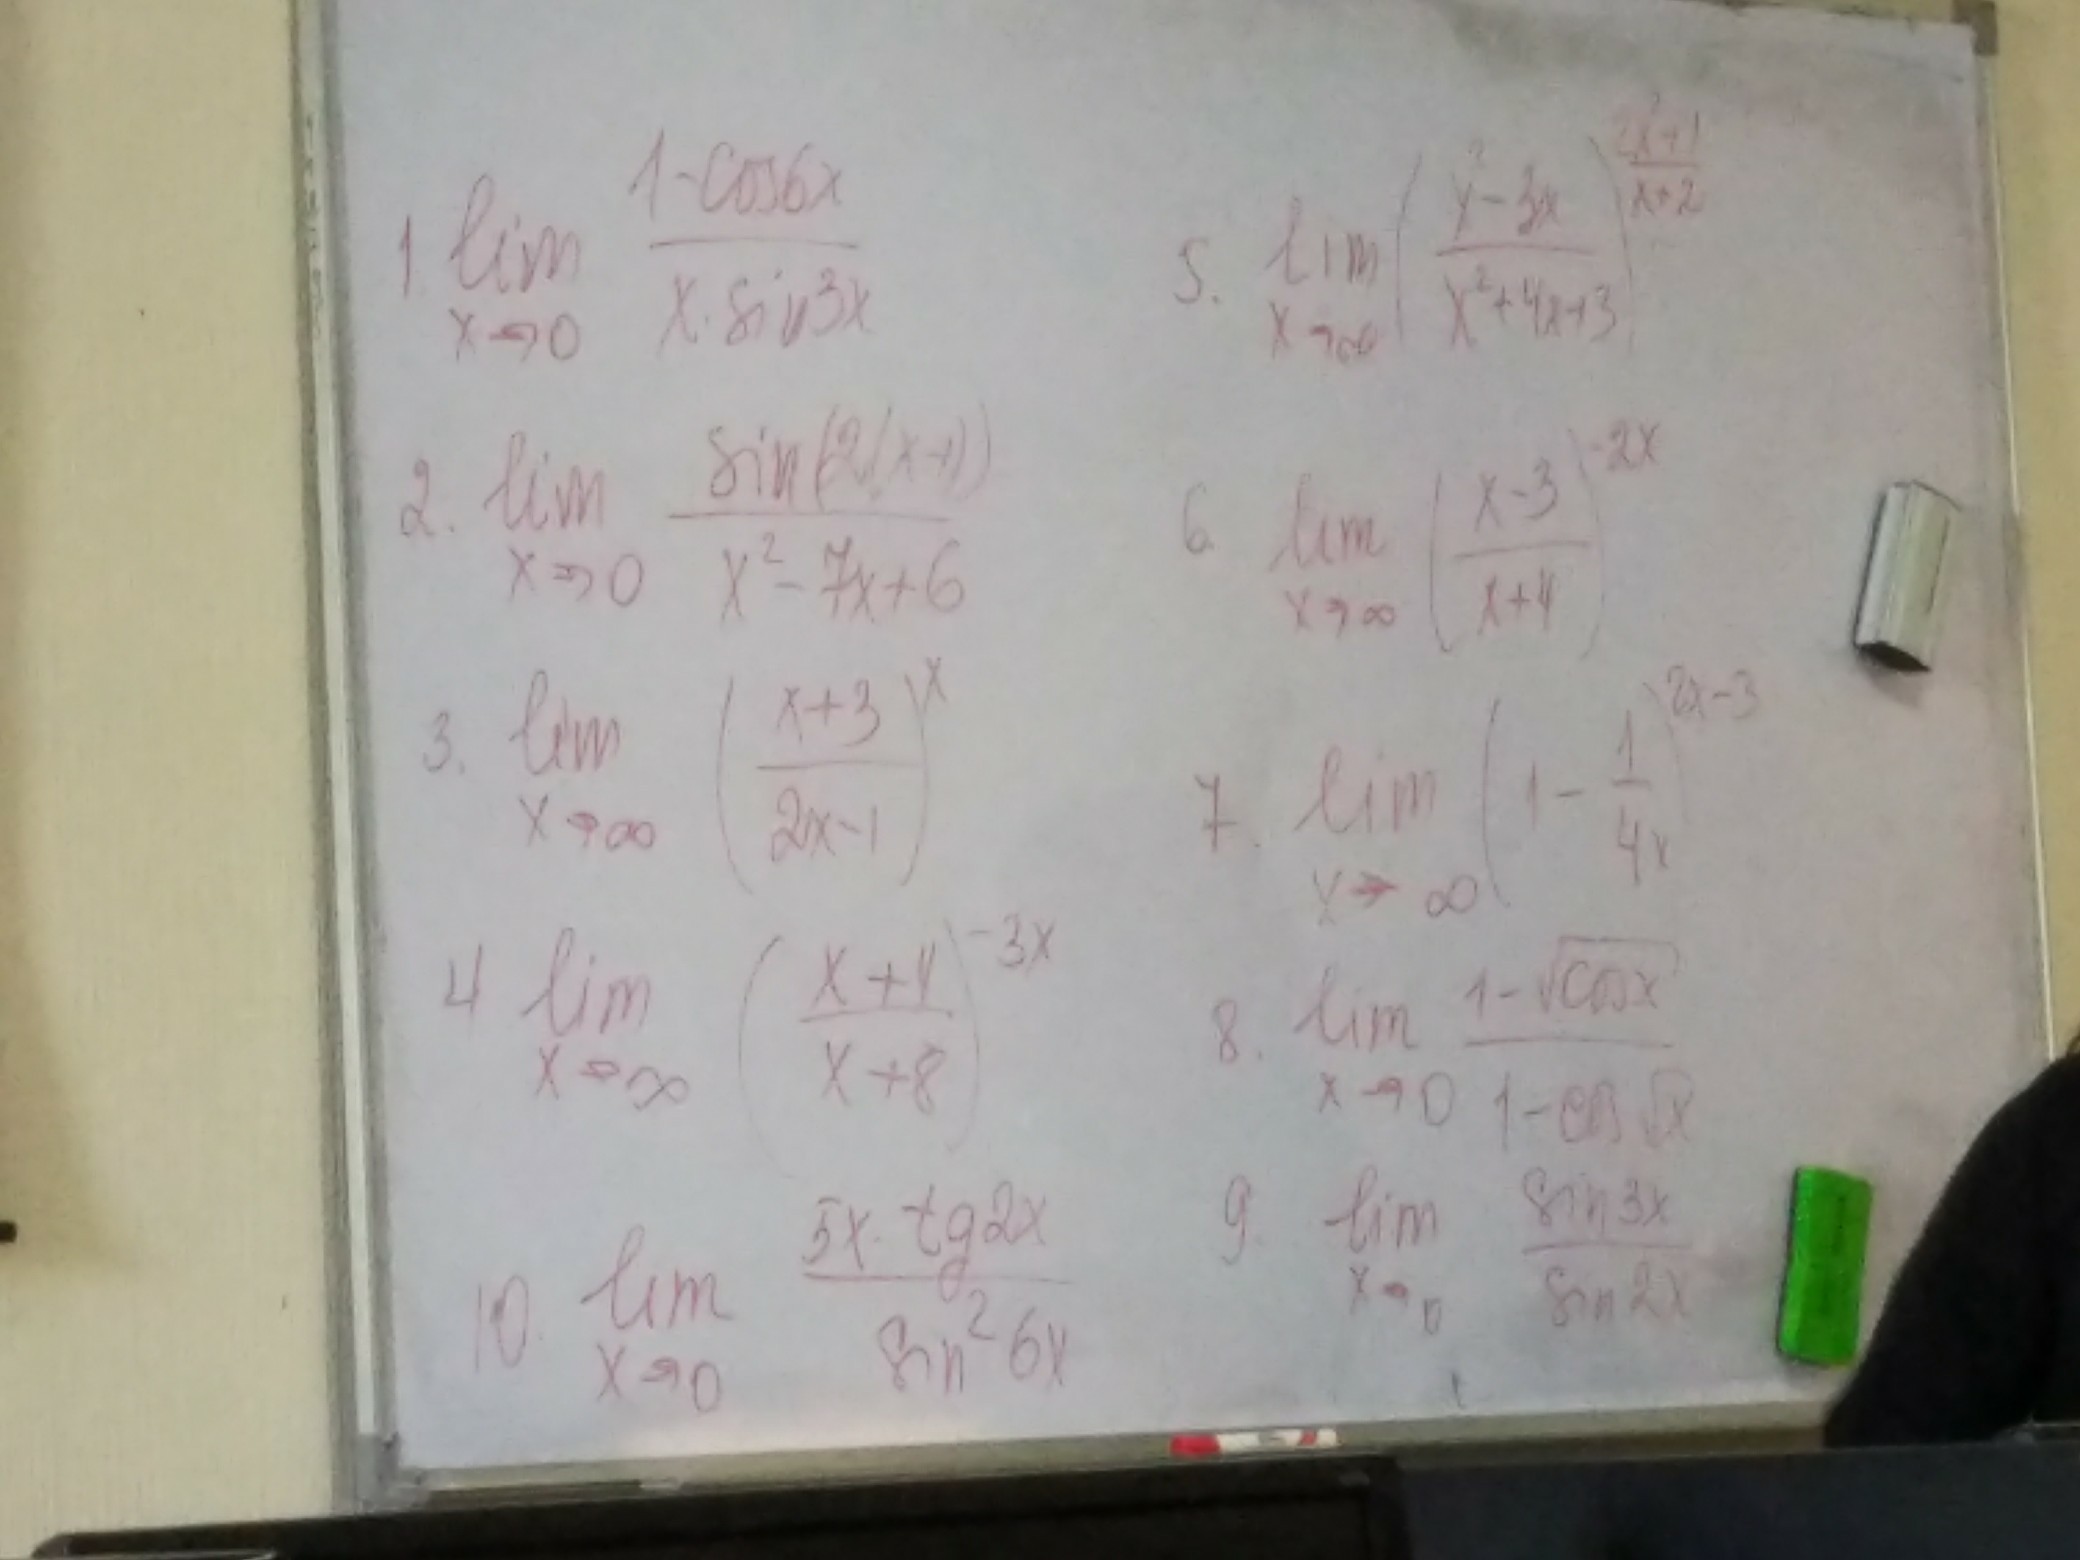 1. lim x→0 (1-cos6x)/(x·sin3x)
2. lim x→0 sin(2(x+1))/(x²-7x+6)
3. lim x→∞ ((x+3)/(2x-1))^x
4 lim x→∞ ((x+4)/(x+8))^(-3x)
10. lim x→0 (5x·tg2x)/(sin²6x)
5. lim x→∞ ((x²-3x)/(x²+4x+3))^((2x²+1)/(x+2))
6. lim x→∞ ((x-3)/(x+4))^(-2x)
7. lim x→∞ (1-1/(4x))^(2x-3)
8. lim x→0 (1-√cosx)/(1-cos√x)
9. lim x→0 sin3x/sin2x